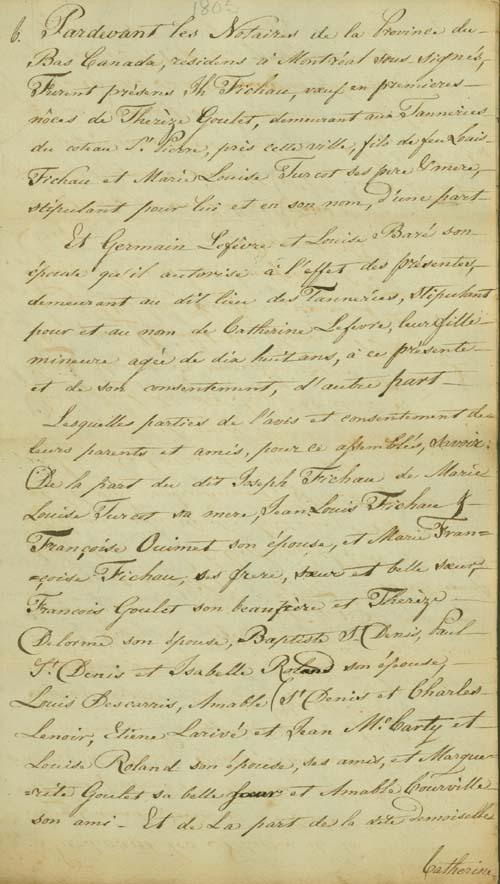 1805
6. Pardevant les Notaires de la Province du
Bas Canada, résidens à Montréal sous signés,
Furent présens Jh Fichau, veuf en premieres
nôces de Thérèze Goulet, demeurant aux Tanneries
du coteau St. Pierre, près cette ville, fils de feu Louis
Fichau et Marie Louise Turcot ses pere & mere,
stipulant pour lui et en son nom, d'une part
Et Germain Lefèvre et Louise Baré son
épouse qu'il autorise à l'effet des présentes,
demeurant au dit lieu des Tanneries, stipulant
pour et au nom de Catherine Lefevre, leur fille
mineure agée de dix huit ans, à ce présente
et de son consentement, d'autre part
Lesquelles parties de l'avis et consentement de
leurs parents et amis, pour ce assemblés, Savoir:
De la part du dit Joseph Fichau de Marie
Louise Turcot sa mere, Jean Louis Fichau &
Françoise Ouimet son épouse, et Marie Fran=
=çoise Fichau, ses frere, sœur et belle sœur,
Francois Goulet son beaufrère et Thérèze
Delorme son épouse, Baptiste St. Denis, Paul
St. Denis et Isabelle Roland son épouse,
Louis Descarris, Amable St. Denis et Charles
Lenoir, Etiene Larivé et Jean McCarty et
Louise Roland son épouse, ses amis, et Margue=
=rite Goulet sa belle sœur et Amable Courville
son ami - Et de La part de la dite demoiselle
Catherine